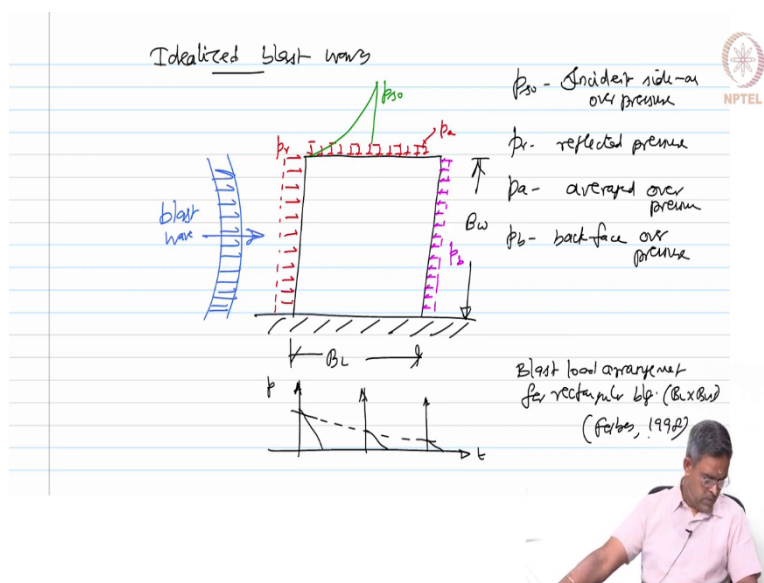 Idealized blast wave
pso
pa
pr
blast
wave
Bw
pb
BL
p
t
pso - Incident side-on
over pressure
pr - reflected pressure
pa - averaged over
pressure
pb - back face over
pressure
Blast load arrangement
for rectangular blg. (BL x Bw)
(Forbes, 1998)
NPTEL